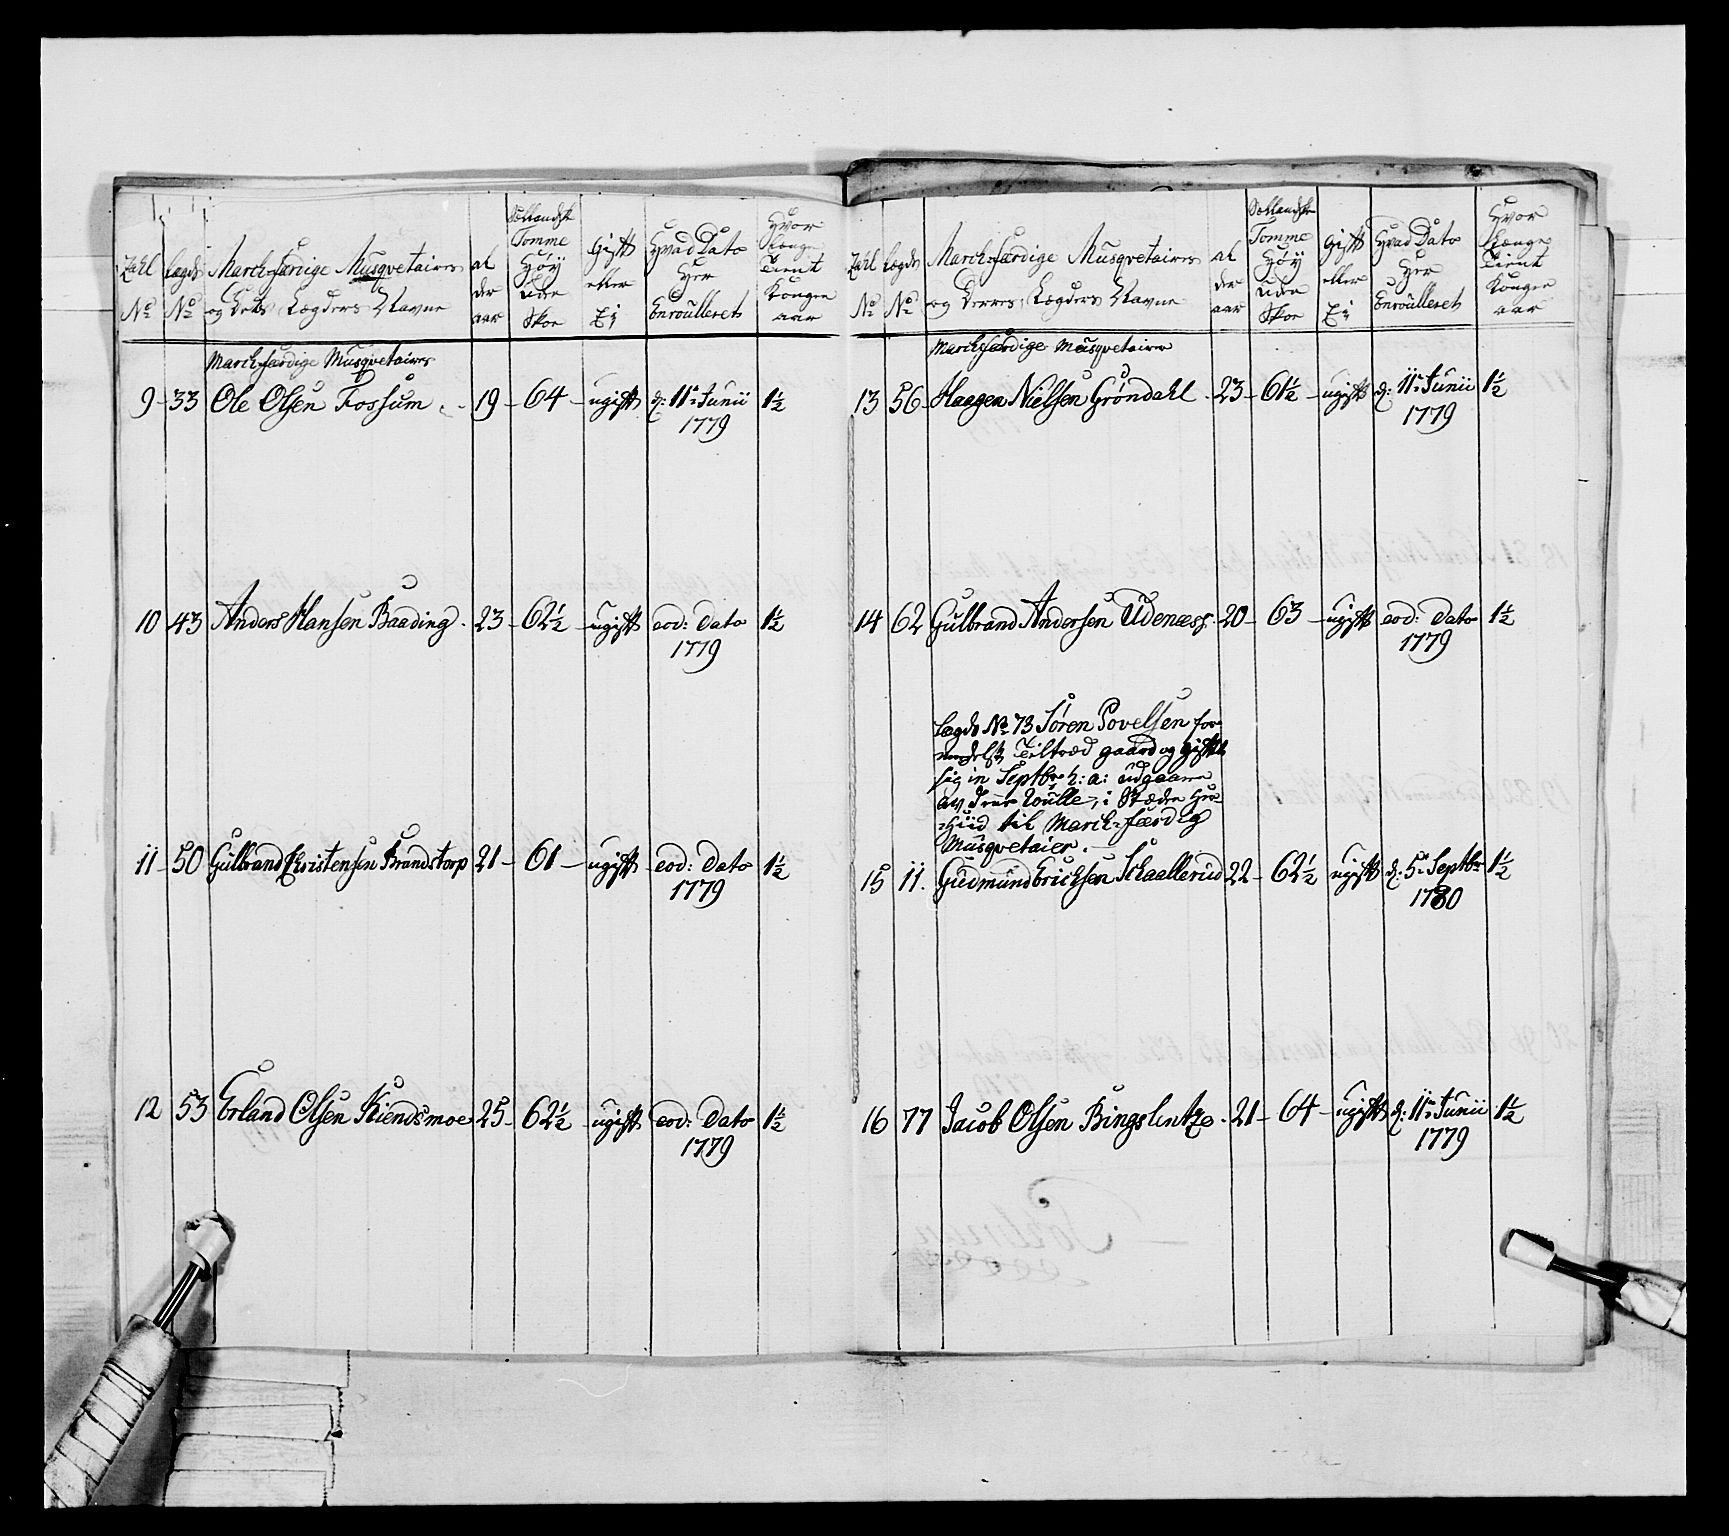 Zahl No
Lægds No
Marchfærdige Musqvetairer og Dets Lægders Navne
al der aar
Sællandske Tomme Høy Uden Skoe
Gift eller Ei
Hvad Dato Her Enroulleret
Hvor Længe Tient Kongen aar
Marchfærdige Musqvetairer
9 - 33 Ole Olsen Fossum - 19 - 64 - ugift d: 11te Junii 1½
1779
10 43 Anders Hansen Baading - 23 - 62½ - ugift eod: Dato 1½
1779
11 - 50 Gulbrand Christensen Brandstorp 21 - 61 - ugift eod: Dato 1½
1779
12 53 Erland Olsen Kiendsmoe 25 - 62½ - ugift eod: Dato 1½
1779
Zahl No
Lægds No
Marchfærdige Musqvetairer og Derres Lægders Navne
al der aar
Sællandske Tomme Høy Uden Skoe
Gift eller Ei
Hvad Dato Her Enroulleret
Hvor Længe Tient Kongen aar
Marchfærdige Musqvetairer
13 56 Haagen Nielsen Gröndahl - 23 - 61½ - ugift d: 11te Junii 1½
1779
14 62 Gulbrand Andersen Udenæss - 20 - 63 - ugift eod: Dato 1½
1779
Lægds No 73 Sören Povelsen for
medelst Tiltræd gaard og gift
sig in Septbr h: a: udgaaen
av Rulle, i Stæden
til March-færdig
Musqvetaier.
15 11. Gudmund Erichsen Skaallerud 22 - 62½ ugift d: 5te Septbr 1½
1780
16 77 Jacob Olsen Bingslentze - 21 - 64 - ugift d: 11te Junii 1½
1779